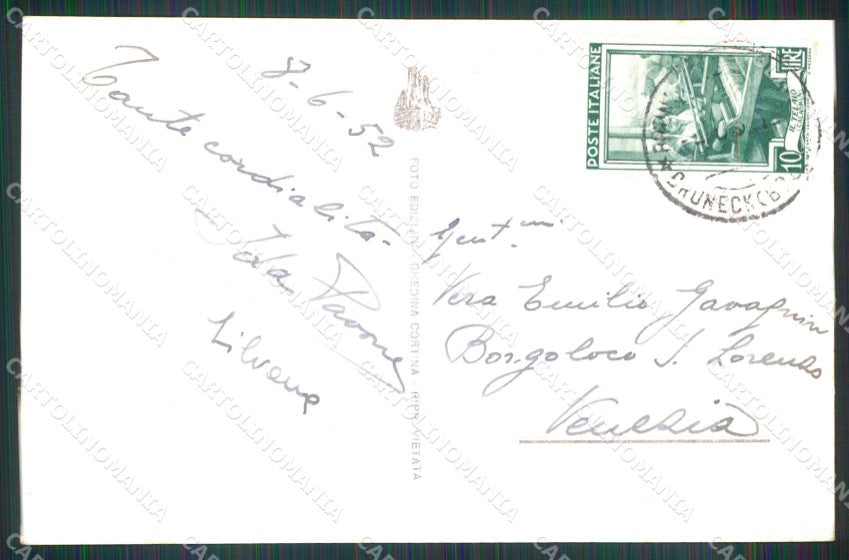 8-6-52
Tante cordialità
Ida Pavone
Silvana
FOTO EDIZIONI GHEDINA CORTINA - RIPR. VIETATA
POSTE ITALIANE
LIRE
10
IL TELAIO
BRUNECK
Gent.mi
Vera Emilio Gavagnin
Borgoloco S. Lorenzo
Venezia
CARTOLINOMANIA